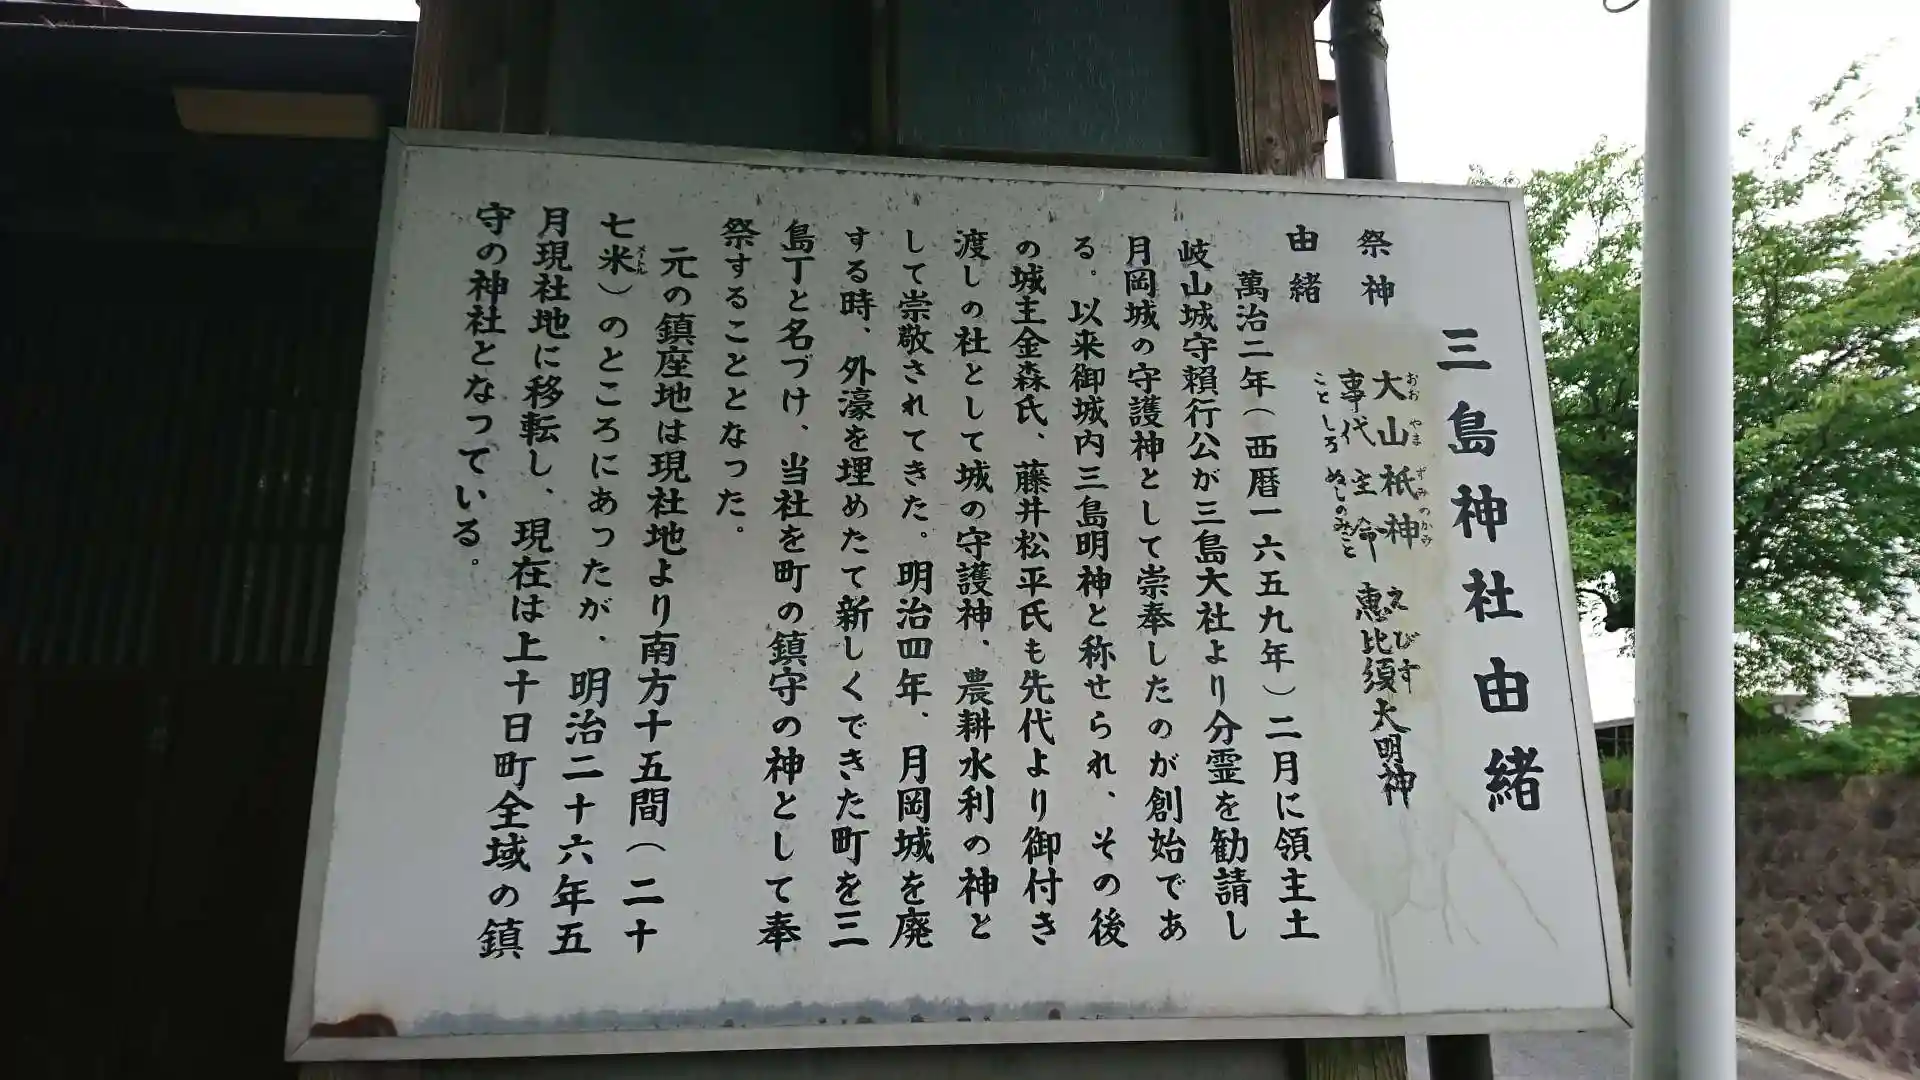 三島神社由緒
祭神
大山祇神
おおやまずみのかみ
事代主命
ことしろぬしのみこと
恵比須大明神
えびす
由緒
萬治二年(西暦一六五九年)二月に領主土
岐山城守頼行公が三島大社より分霊を勧請し
月岡城の守護神として崇奉したのが創始であ
る。以来御城内三島明神と称せられ、その後
の城主金森氏、藤井松平氏も先代より御付き
渡しの社として城の守護神、農耕水利の神と
して崇敬されてきた。明治四年、月岡城を廃
する時、外濠を埋めたて新しくできた町を三
島丁と名づけ、当社を町の鎮守の神として奉
祭することとなった。
元の鎮座地は現社地より南方十五間(二十
七米)のところにあったが、明治二十六年五
メートル
月現社地に移転し、現在は上十日町全域の鎮
守の神社となっている。